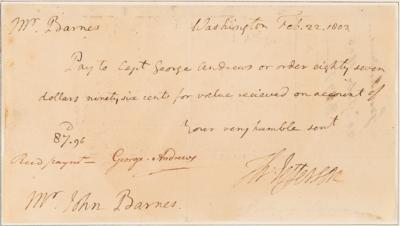 Mr. Barnes Washington Feb. 22. 1802
Pay to Capt George Andrews or order eighty seven
dollars ninety six cents for value recieved on account of
Your very humble servt
87 D. 96
Th: Jefferson
Recd paymt George Andrews
Mr. John Barnes.